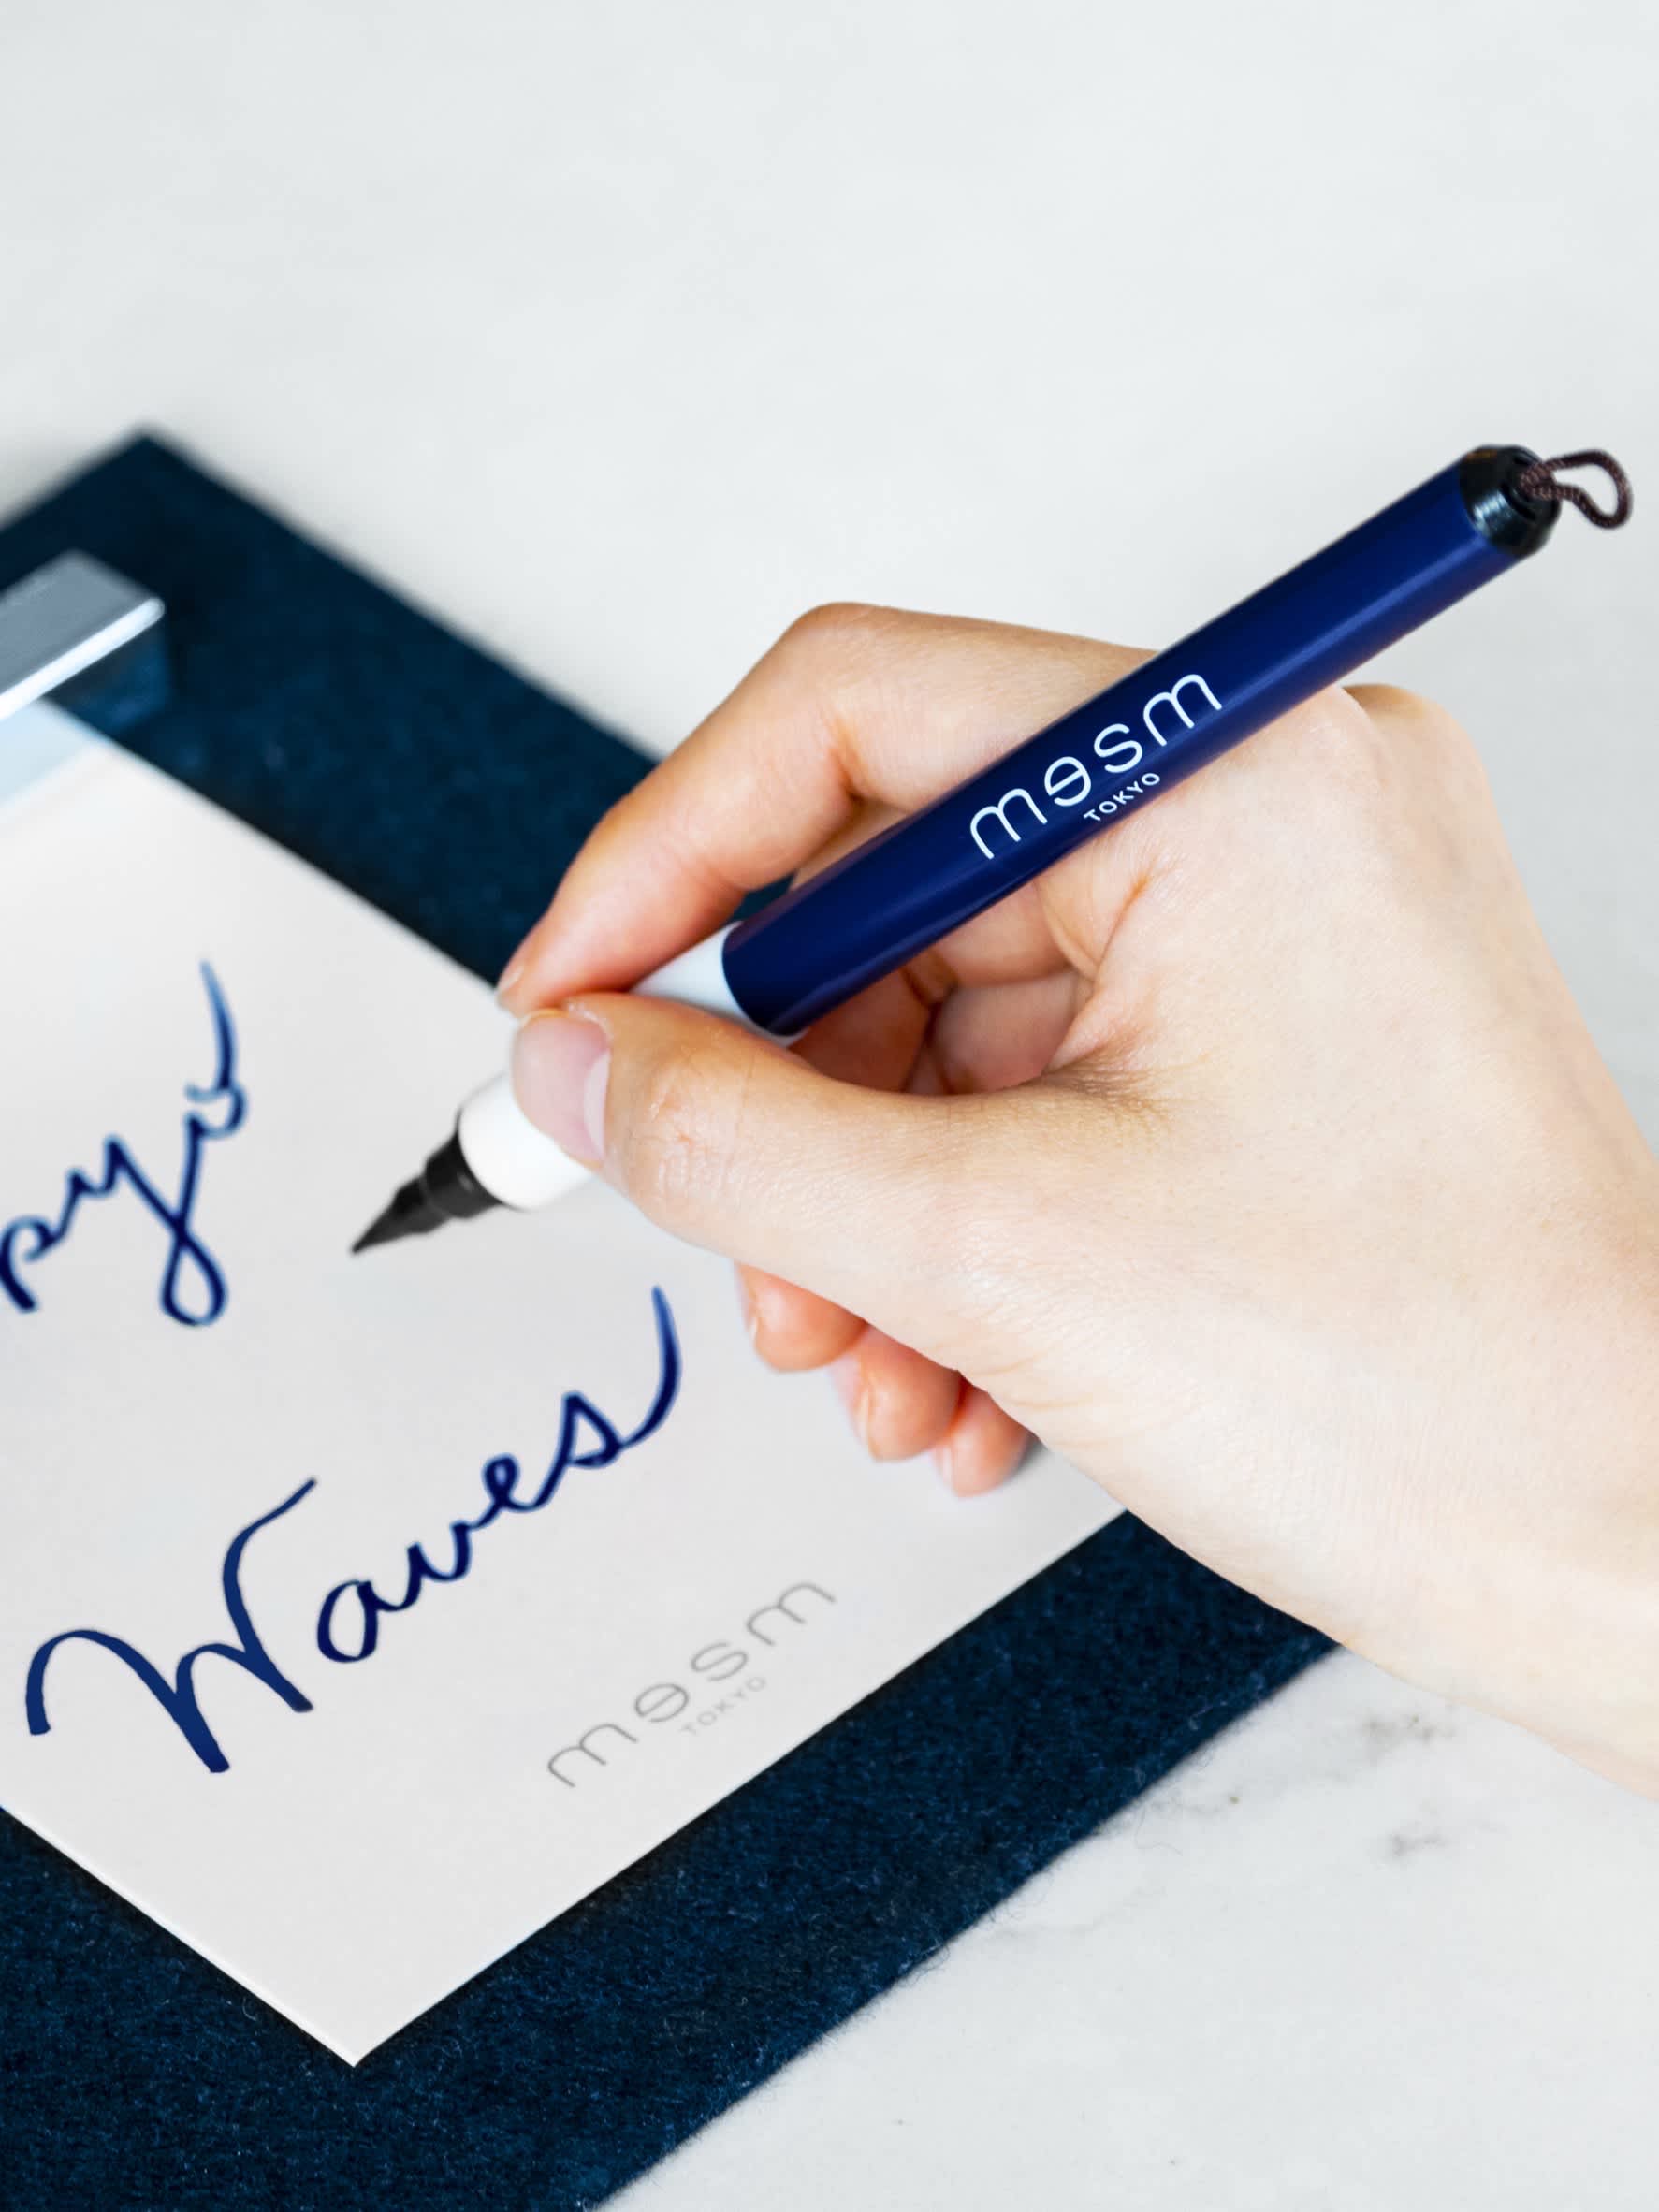 pyo
Waves
mesm
TOKYO
mesm
TOKYO